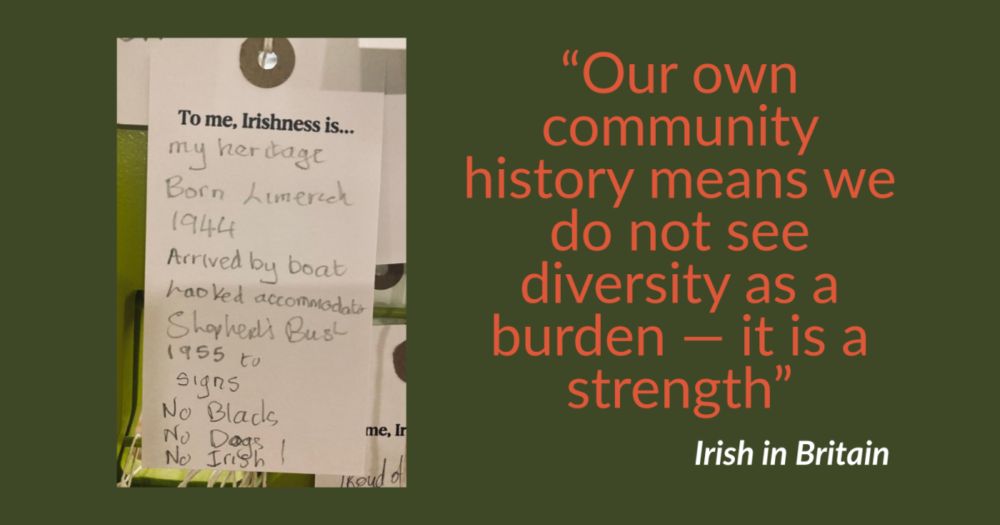 To me, Irishness is...
my heritage
Born Limerick
1944
Arrived by boat
looked accommodation
Shepherd's Bush
1955 to
signs
No Blacks
No Dogs
No Irish !
me, Ir
Proud of
“Our own
community
history means we
do not see
diversity as a
burden — it is a
strength”
Irish in Britain